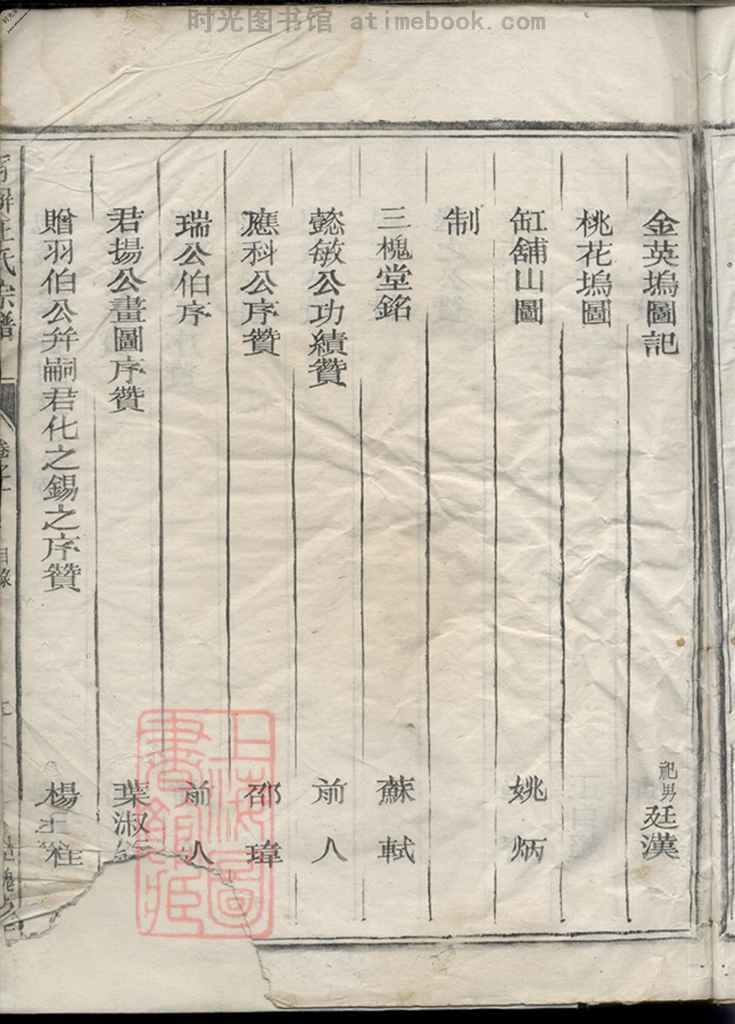 时光图书馆 atimebook.com
金英塢圖記 祀男廷漢
桃花塢圖
缸舖山圖 姚炳
制
三槐堂銘 蘇軾
懿敏公功績贊 前人
應科公序贊 邵瑋
瑞公伯序 前人
君揚公畫圖序贊 葉淑
贈羽伯公幷嗣君化之錫之序贊 楊
王氏宗譜 卷之一 目錄
上海圖書館藏